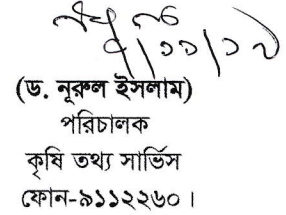 ৫/১১/১৭
(ড. নূরুল ইসলাম)
পরিচালক
কৃষি তথ্য সার্ভিস
ফোন-৯১১২২৬০।